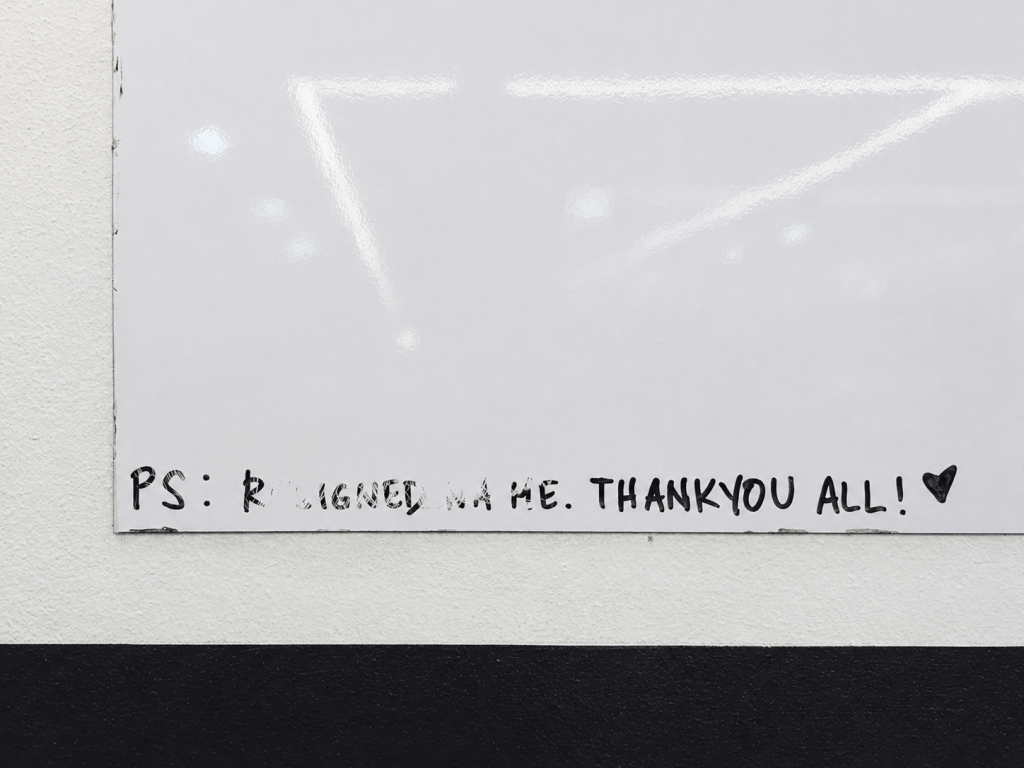 PS: RESIGNED NA ME. THANKYOU ALL! ♥